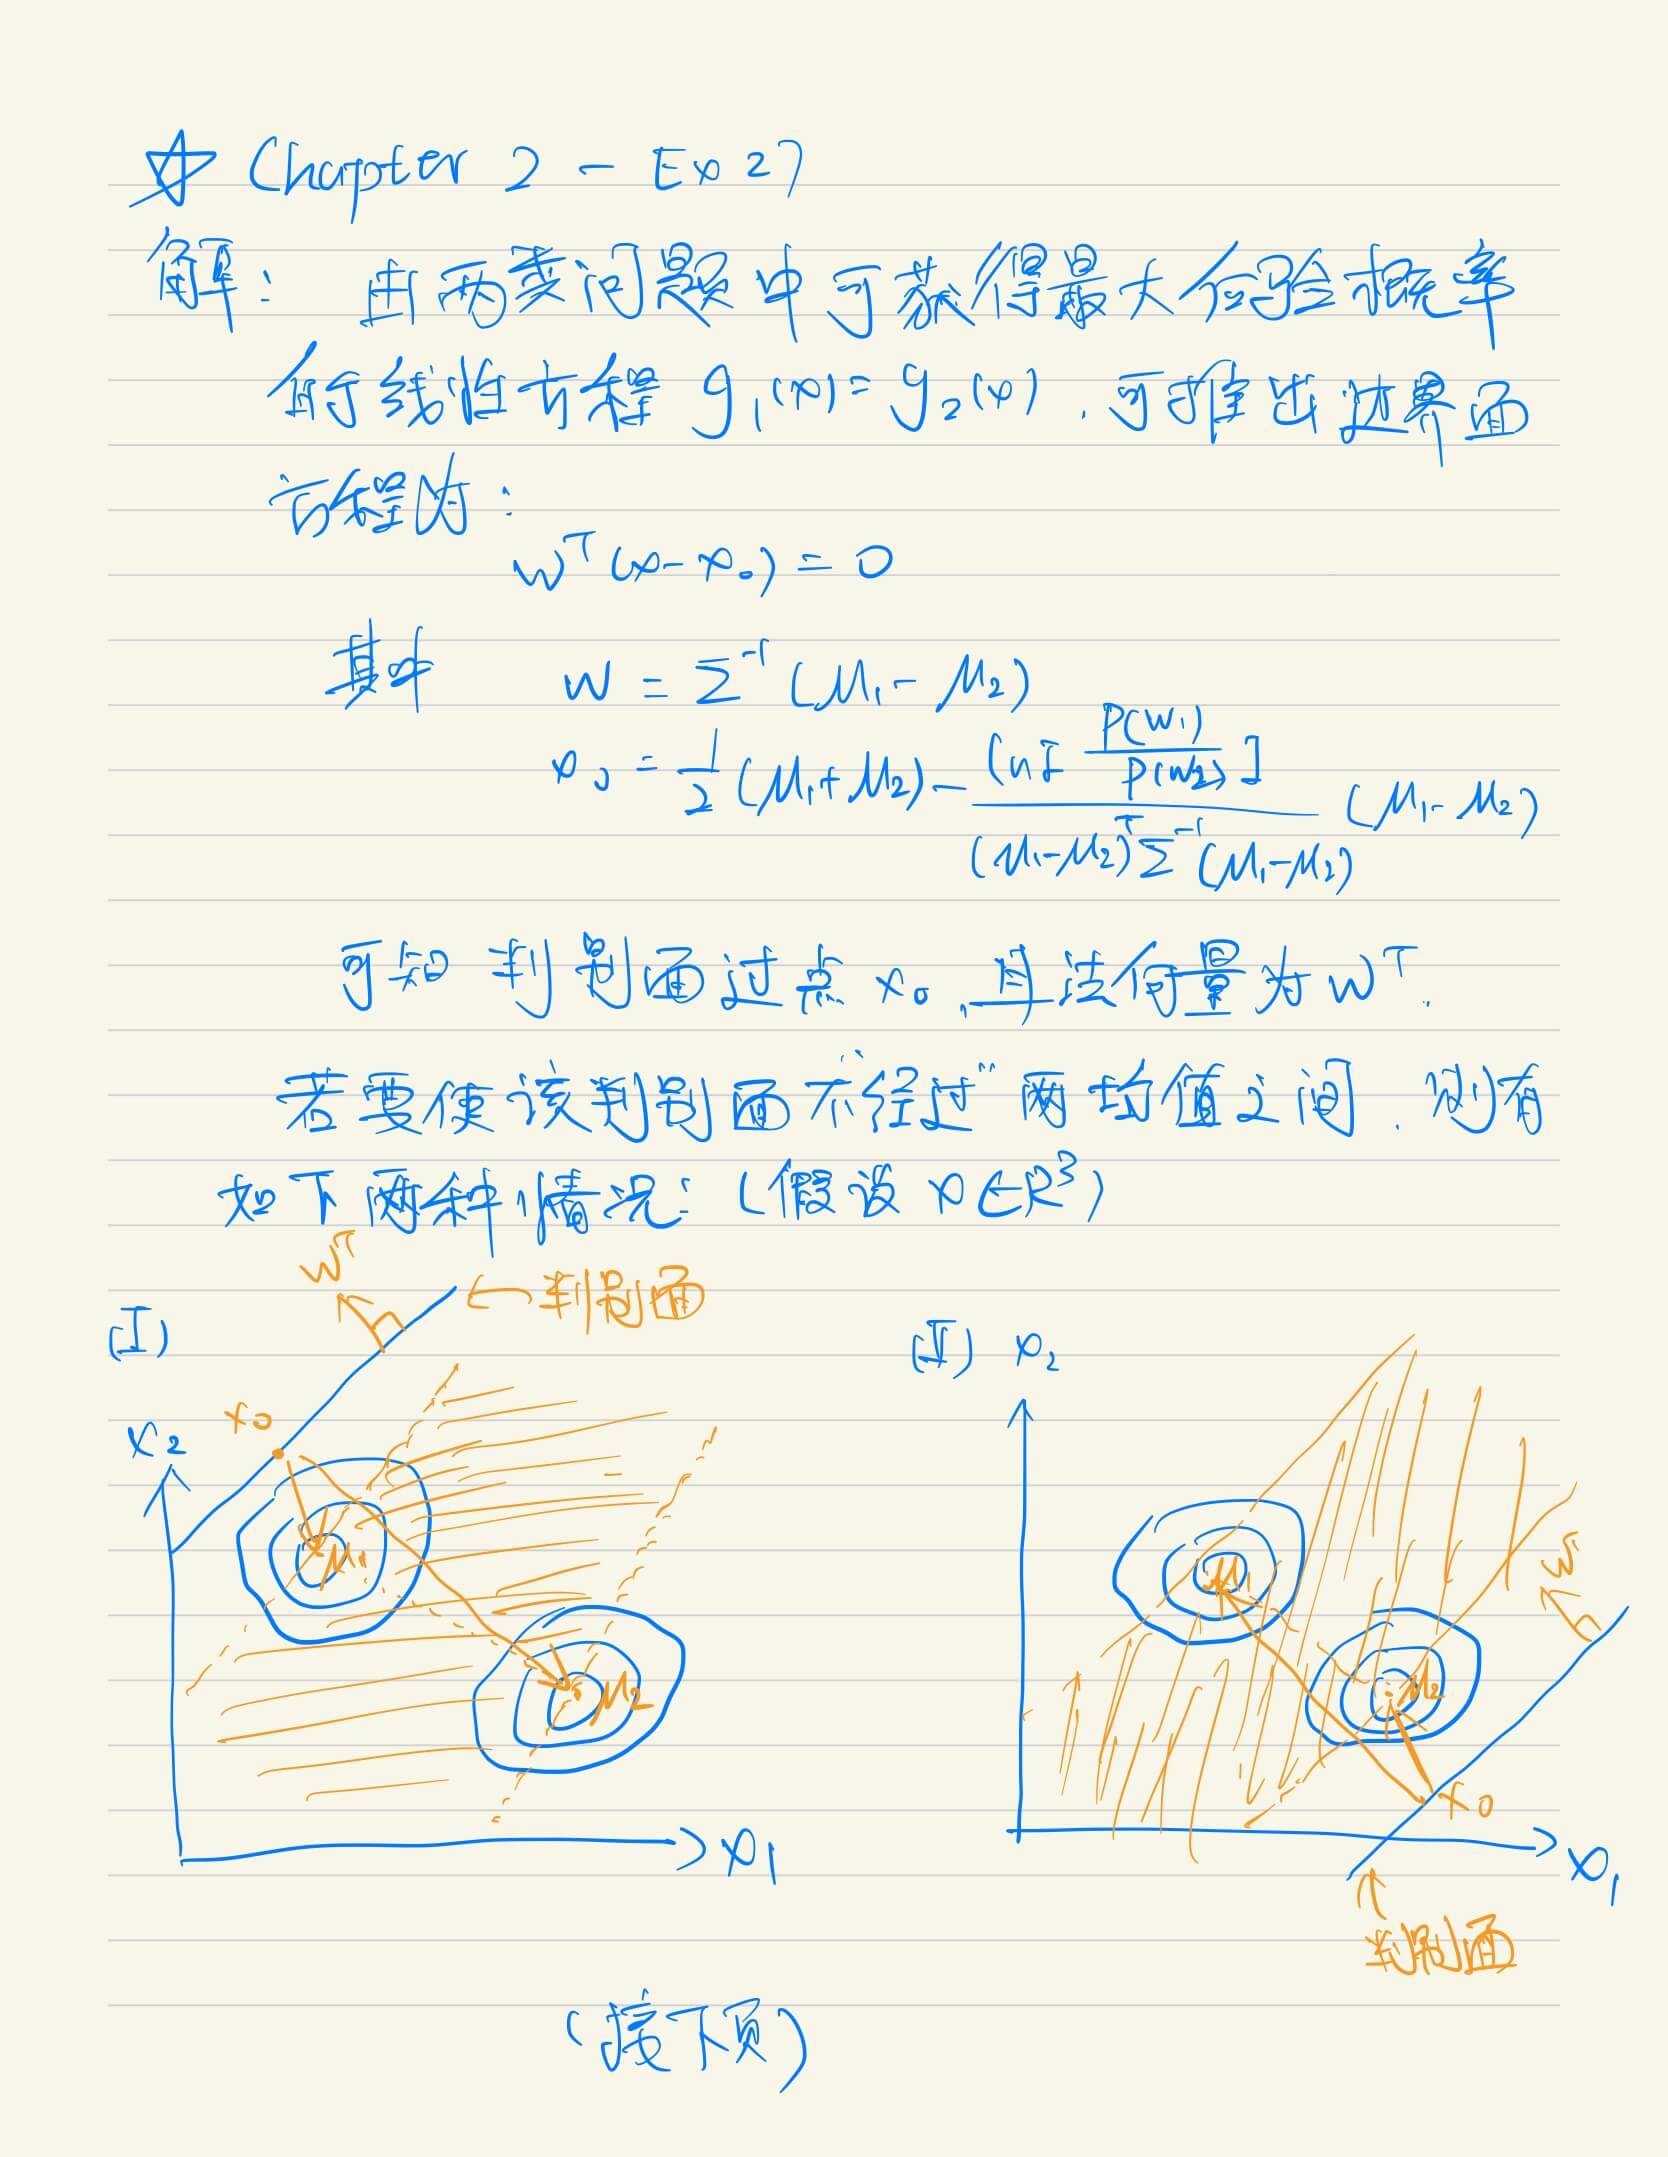 ☆ Chapter 2 - Ex 27
解: 由两类问题中可获得最大后验概率
的线性方程 g₁(x)=g₂(x), 可推出边界面
方程为:
wᵀ(x-x₀)=0
其中 w = Σ⁻¹(μ₁-μ₂)
x₀ = 1/2 (μ₁+μ₂) - ln[P(w₁)/P(w₂)] / (μ₁-μ₂)ᵀΣ⁻¹(μ₁-μ₂) (μ₁-μ₂)
可知 判别面过点 x₀, 且法向量为 wᵀ.
若要使该判别面“不经过”两均值之间, 则有
如下两种情况: (假设 x∈R³)
(I) wᵀ ← 判别面
x₀
x₂
μ₁
μ₂
x₁
(II) x₂
wᵀ
μ₁
μ₂
x₀
x₁
↑
判别面
(接下页)